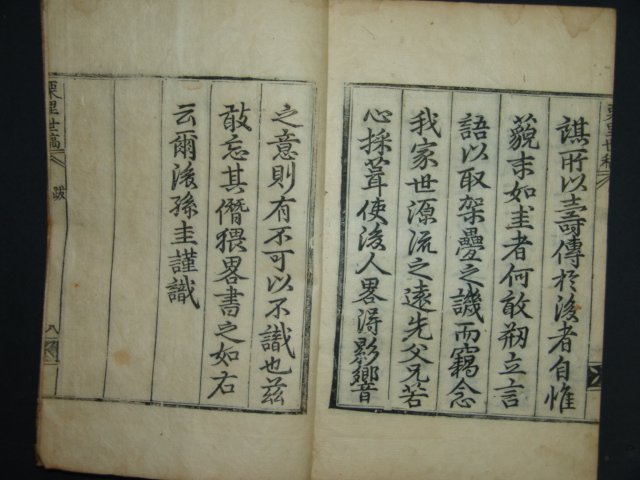 謨所以壽傳於後者自惟
藐末如圭者何敢刱立言
語以取架疊之譏而竊念
我家世源流之遠先父兄苦
心採葺使後人畧得影響
之意則有不可以不識也玆
敢忘其僭猥畧書之如右
云爾後孫圭謹識
栗里世稿
跋
八